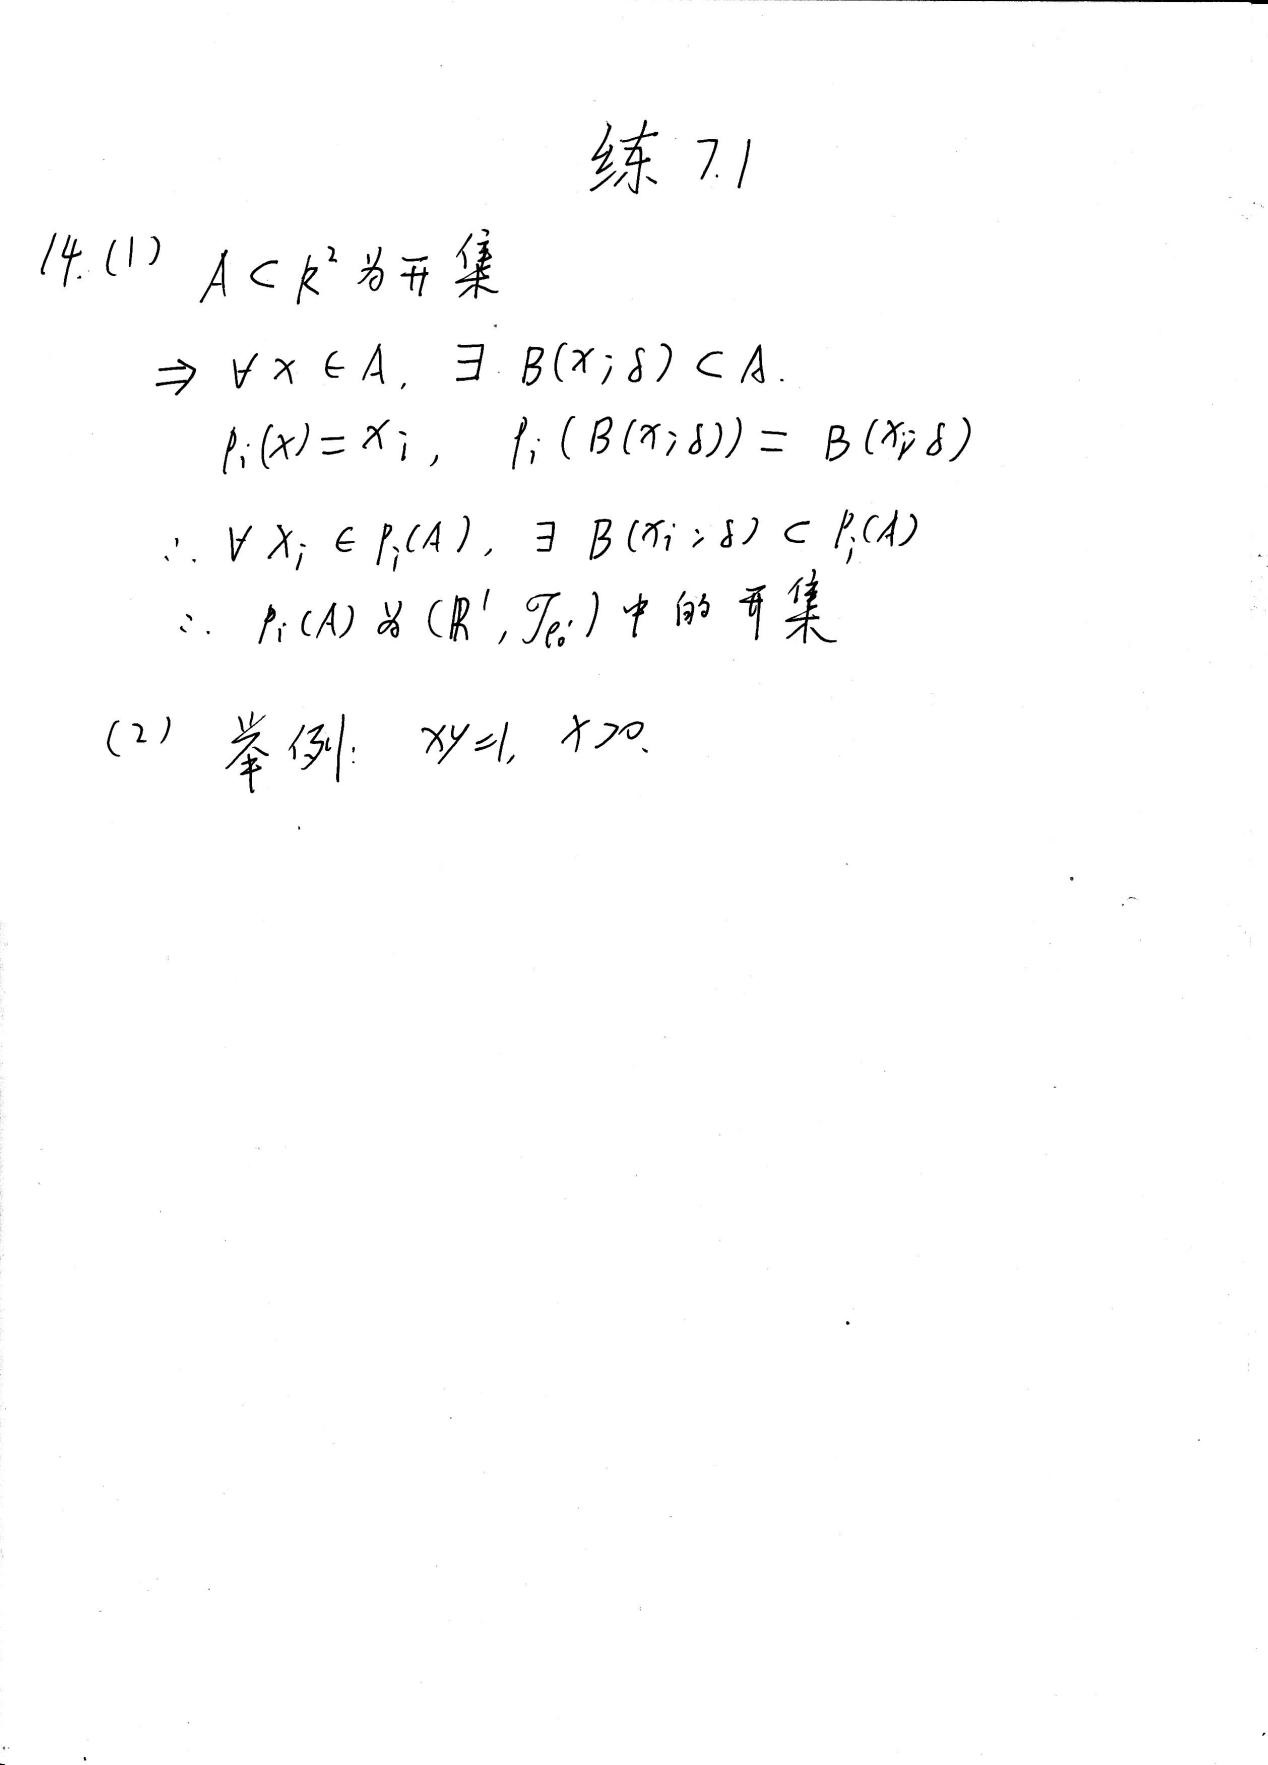 练 7.1
14.(1) A⊂R²为开集
⇒ ∀x∈A, ∃ B(x;δ)⊂A.
Pᵢ(x)=xᵢ, Pᵢ(B(x;δ))= B(xᵢ;δ)
∴ ∀xᵢ∈Pᵢ(A), ∃ B(xᵢ;δ)⊂Pᵢ(A)
∴ Pᵢ(A)为(ℝ¹, 𝒯) 中的开集
(2) 举例: xy=1, x>0.